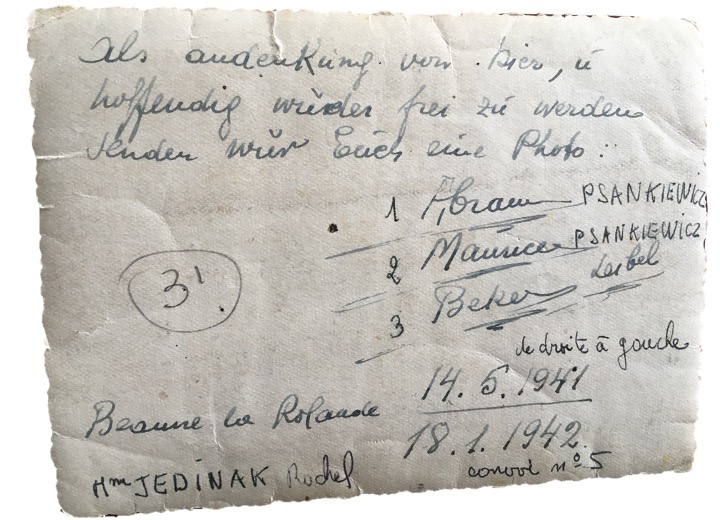 als andenkung von hier, u
hoffendig wieder frei zu werden
sender wir Euch eine Photo:
1 Abram PSANKIEWICZ
2 Maurice PSANKIEWICZ
3 Beker Leibel
31
de droite à gauche
14.5.1941
Beaune la Rolande
18.1.1942.
Mm JEDINAK Rochel
convoi nº 5